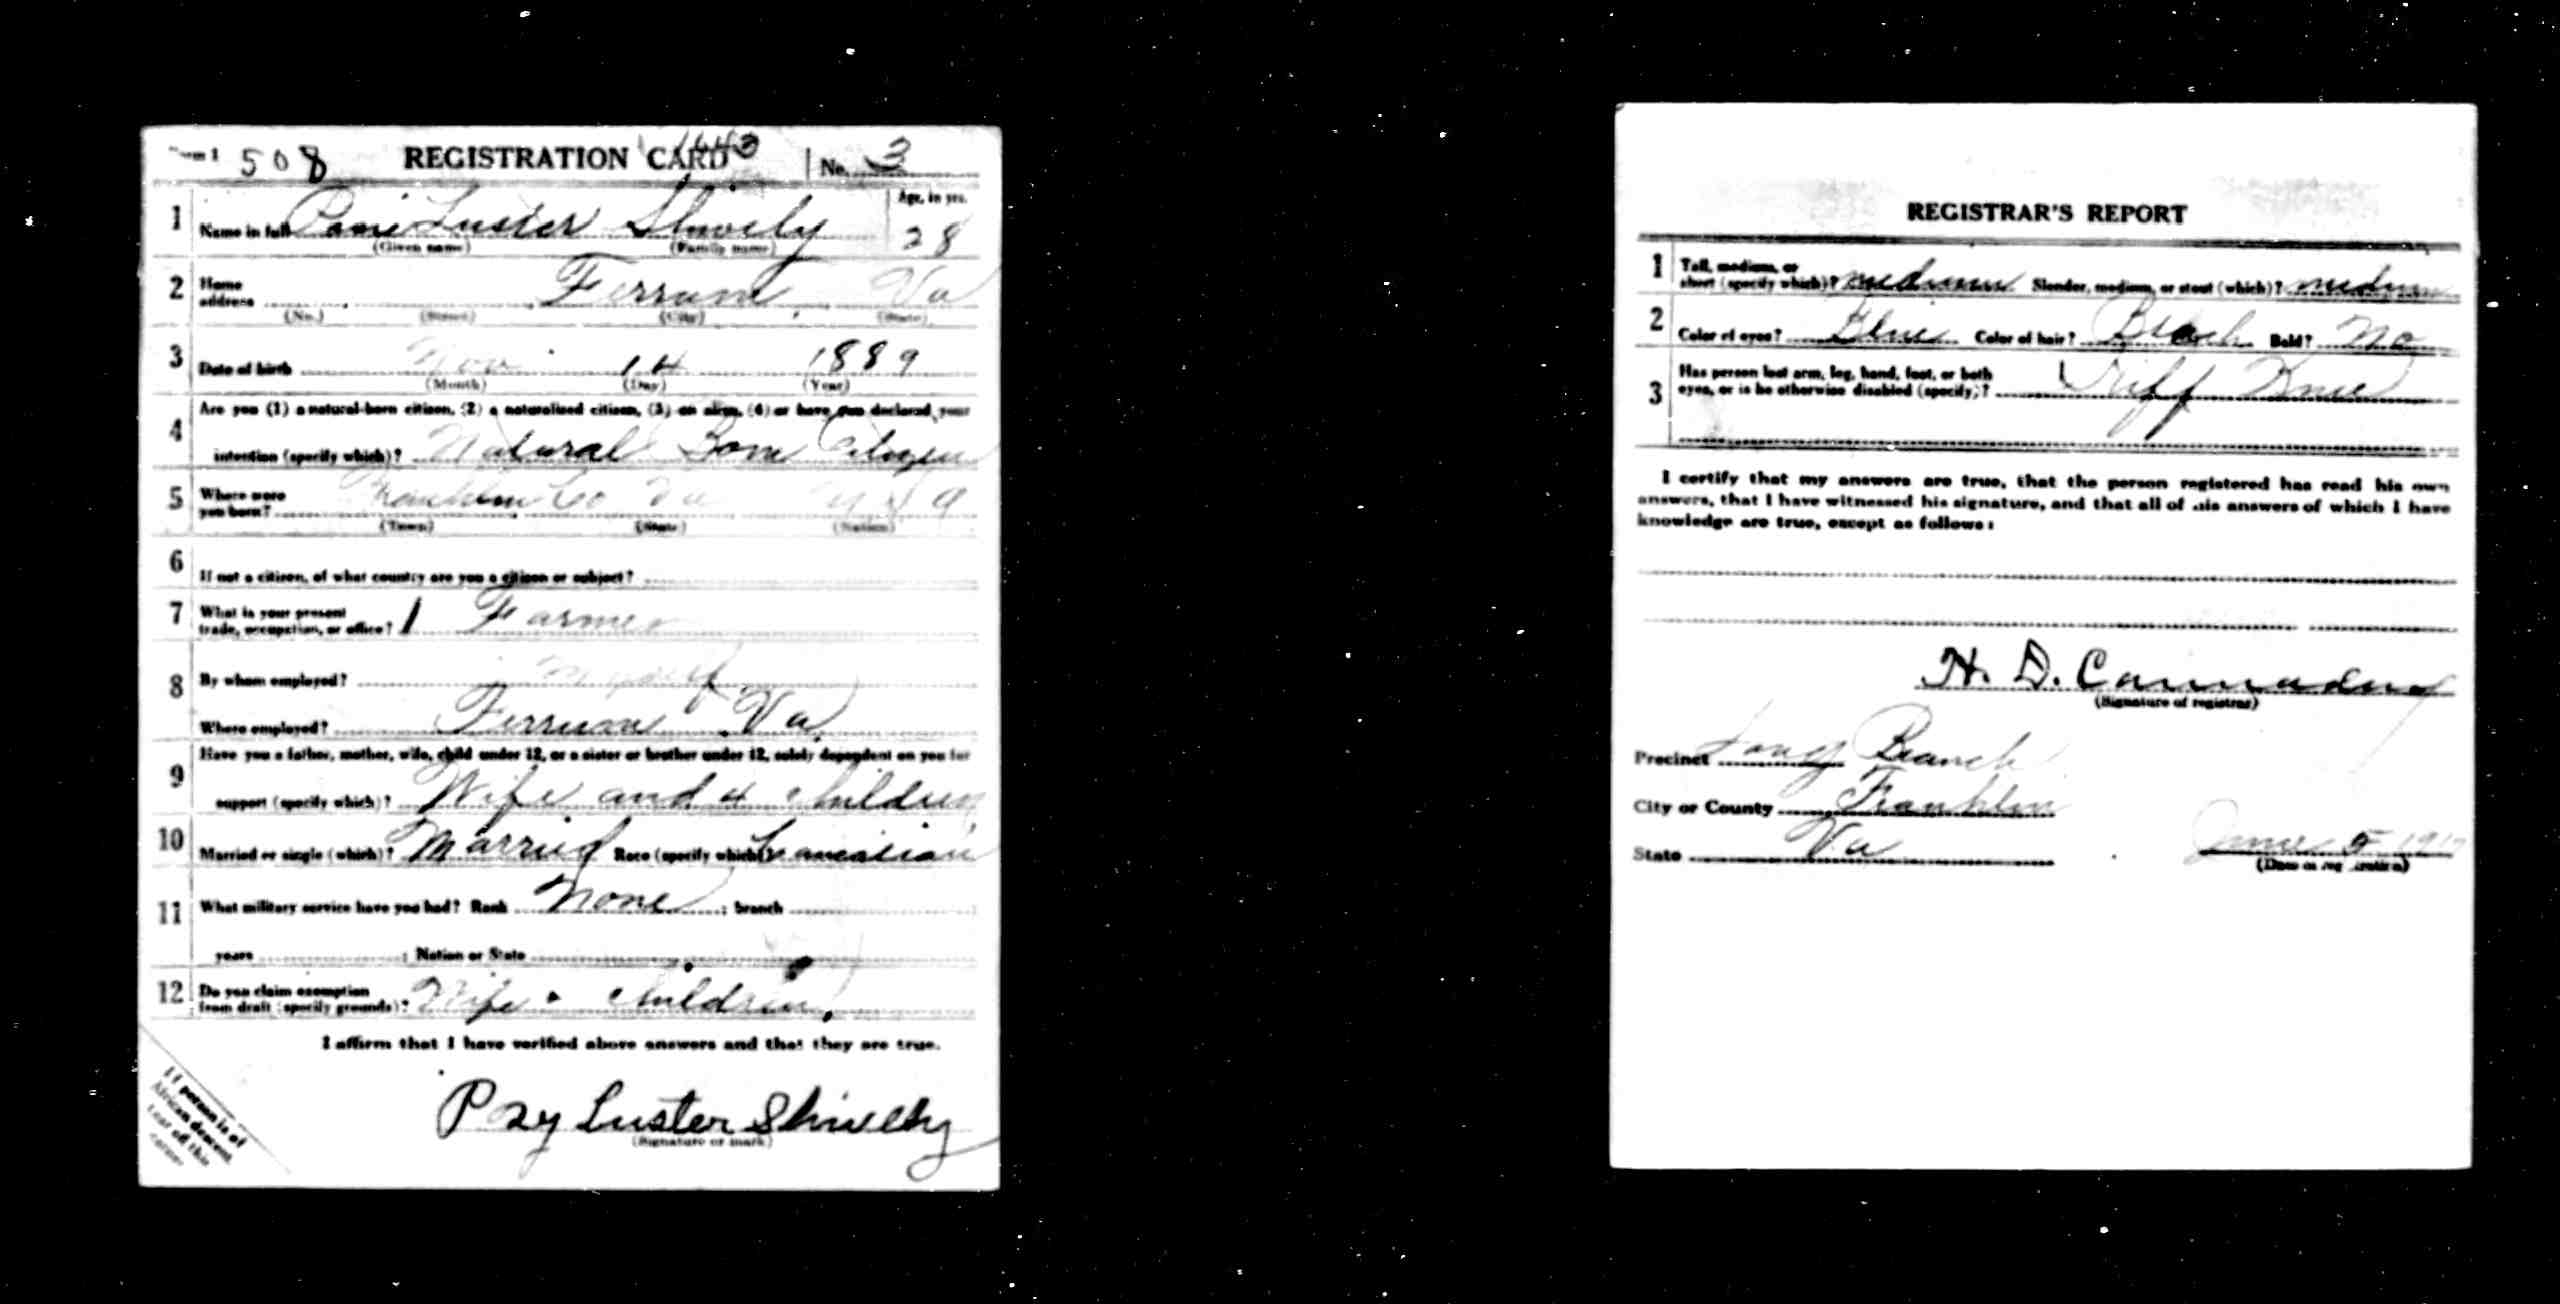 Form 1 508 REGISTRATION CARD 1643 No. 3
1 Name in full Luster Shively Age, in yrs. 28
(Given name) (Family name)
2 Home address Ferrum Va
(No.) (Street) (City) (State)
3 Date of birth Nov 14 1889
(Month) (Day) (Year)
4 Are you (1) a natural-born citizen, (2) a naturalized citizen, (3) an alien, (4) or have you declared your
intention (specify which)? Natural Born Citizen
5 Where were you born? Franklin Co Va
(Town) (State) (Nation)
6 If not a citizen, of what country are you a citizen or subject?
7 What is your present trade, occupation, or office? Farmer
8 By whom employed? Myself
Where employed? Ferrum Va
9 Have you a father, mother, wife, child under 12, or a sister or brother under 12, solely dependent on you for
support (specify which)? Wife and 4 children
10 Married or single (which)? Married Race (specify which)? Caucasian
11 What military service have you had? Rank None ; branch
years ; Nation or State
12 Do you claim exemption from draft (specify grounds)? Wife children
I affirm that I have verified above answers and that they are true.
Posy Luster Shively
(Signature or mark)
If person is of
African descent,
tear off this
corner
REGISTRAR'S REPORT
1 Tall, medium, or short (specify which)? medium Slender, medium, or stout (which)? medium
2 Color of eyes? Blue Color of hair? Black Bald? No
3 Has person lost arm, leg, hand, foot, or both
eyes, or is he otherwise disabled (specify)? Stiff Knee
I certify that my answers are true, that the person registered has read his own
answers, that I have witnessed his signature, and that all of his answers of which I have
knowledge are true, except as follows:
H. D. Cannaday
(Signature of registrar)
Precinct Long Branch
City or County Franklin
State Va June 5 1917
(Date of registration)